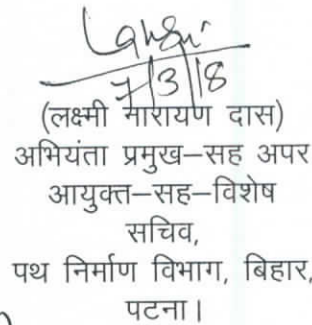 Laksmi
7/3/18
(लक्ष्मी नारायण दास)
अभियंता प्रमुख–सह अपर
आयुक्त–सह–विशेष
सचिव,
पथ निर्माण विभाग, बिहार,
पटना।